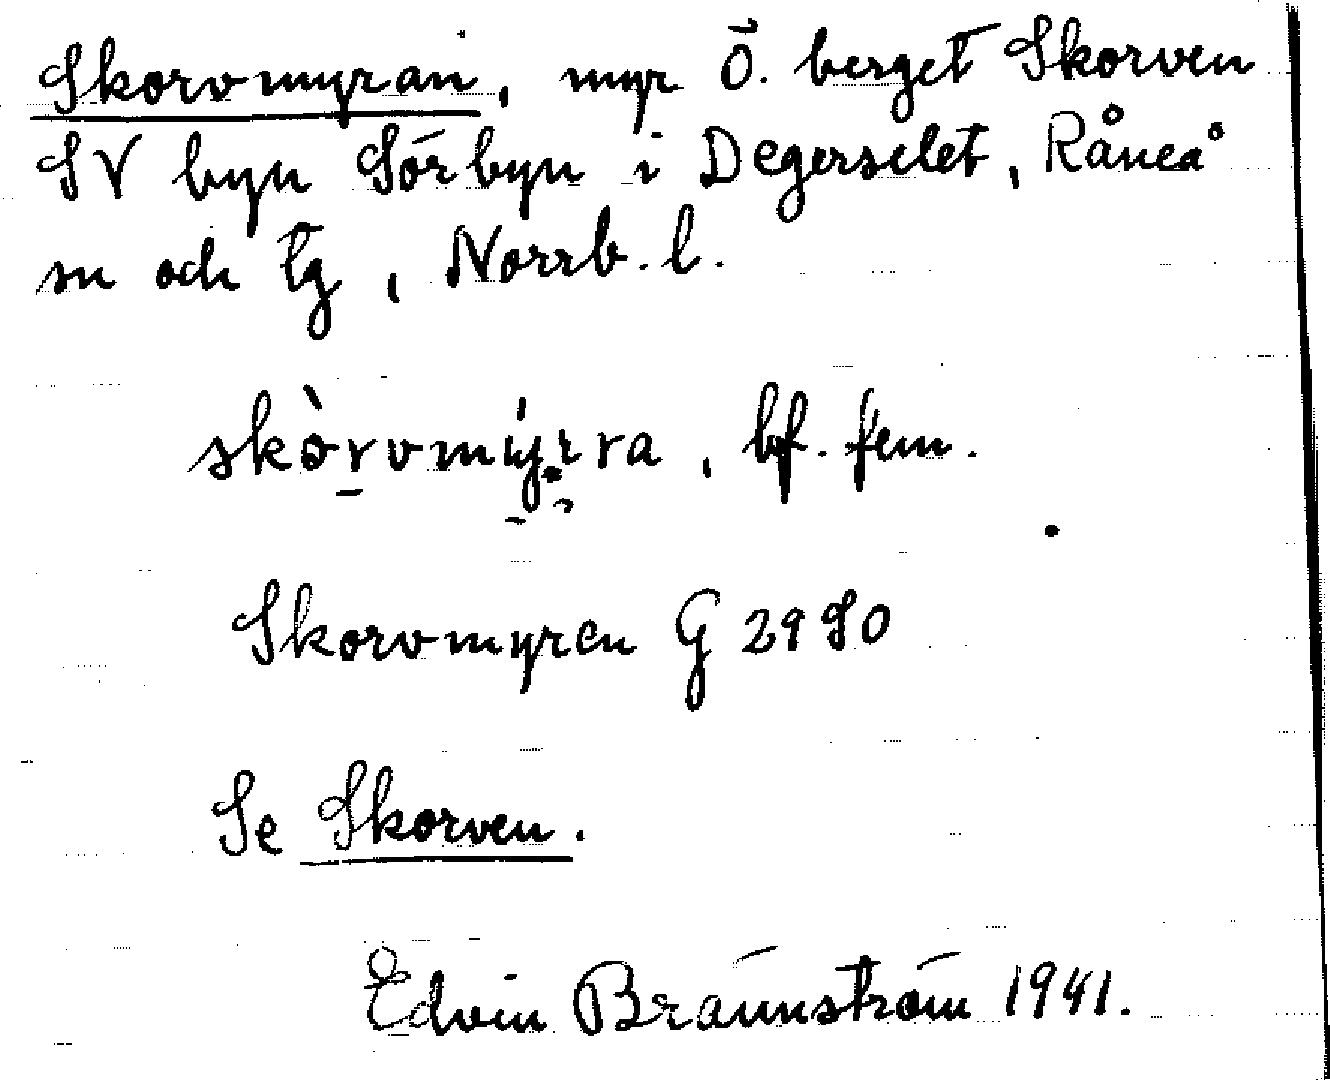 Skorvmyran, myr Ö. berget Skorven
SV byn Sörbyn i Degerselet, Råneå
sn och tg, Norrb. l.
skòrvmýrra, bf. fem.
Skorvmyren G 2980
Se Skorven.
Edvin Brännström 1941.